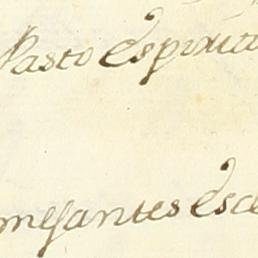 Pasto Espiritu
mesantes Esce